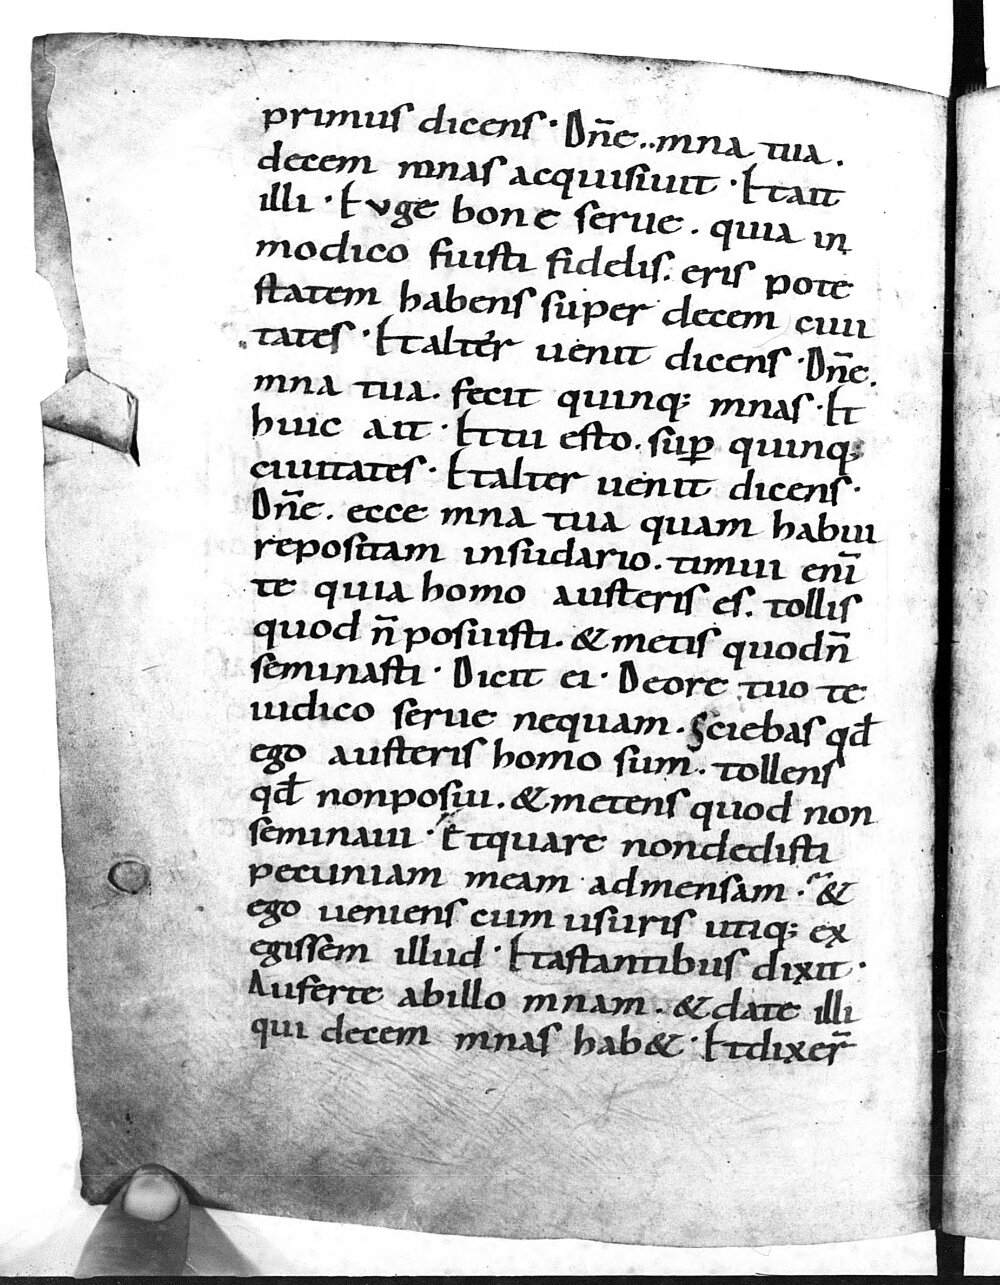 primus dicens · Dn̄e .. mna tua .
decem mnas acquisiuit · Et ait
illi · Euge bone serue . quia in
modico fuisti fidelis . eris pote
statem habens super decem ciui
tates · Et alter uenit dicens · Dn̄e .
mna tua . fecit quinq; mnas · Et
huic ait · Et tu esto . sup̱ quinq;
ciuitates · Et alter uenit dicens ·
Dn̄e . ecce mna tua quam habui
repositam in sudario . timui eni̅
te quia homo austeris es . tollis
quod n̄ posuisti . & metis quod n̄
seminasti · Dicit ei · De ore tuo te
iudico serue nequam . Sciebas qđ
ego austeris homo sum . tollens
qđ non posui . & metens quod non
seminaui · Et quare non dedisti
pecuniam meam ad mensam · &
ego ueniens cum usuris utiq; ex
egissem illud · Et astantibus dixit ·
Auferte ab illo mnam . & date illi
qui decem mnas hab& · Et dixer̄